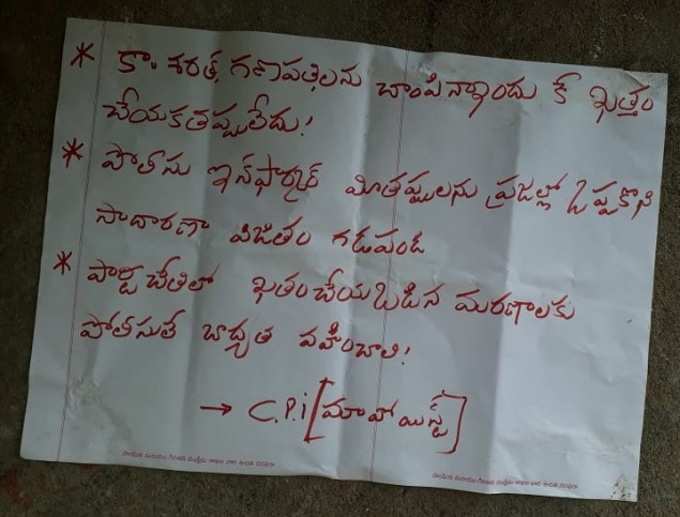 * కా. శరత్, గణపతిలను చంపినాఇందు కే ఖత్తం
చేయకతప్పులేదు!
* పోలీసు ఇన్‌ఫార్మర్ మీతప్పులను ప్రజల్లో ఒప్పుకొని
సాదారణా విజితం గడపండి
* పార్టి చేతిలో ఖతంచేయబడిన మరణాలకు
పోలీసులే బాధ్యత వహించాలి!
→ C.P.i [మావోయిస్ట్]